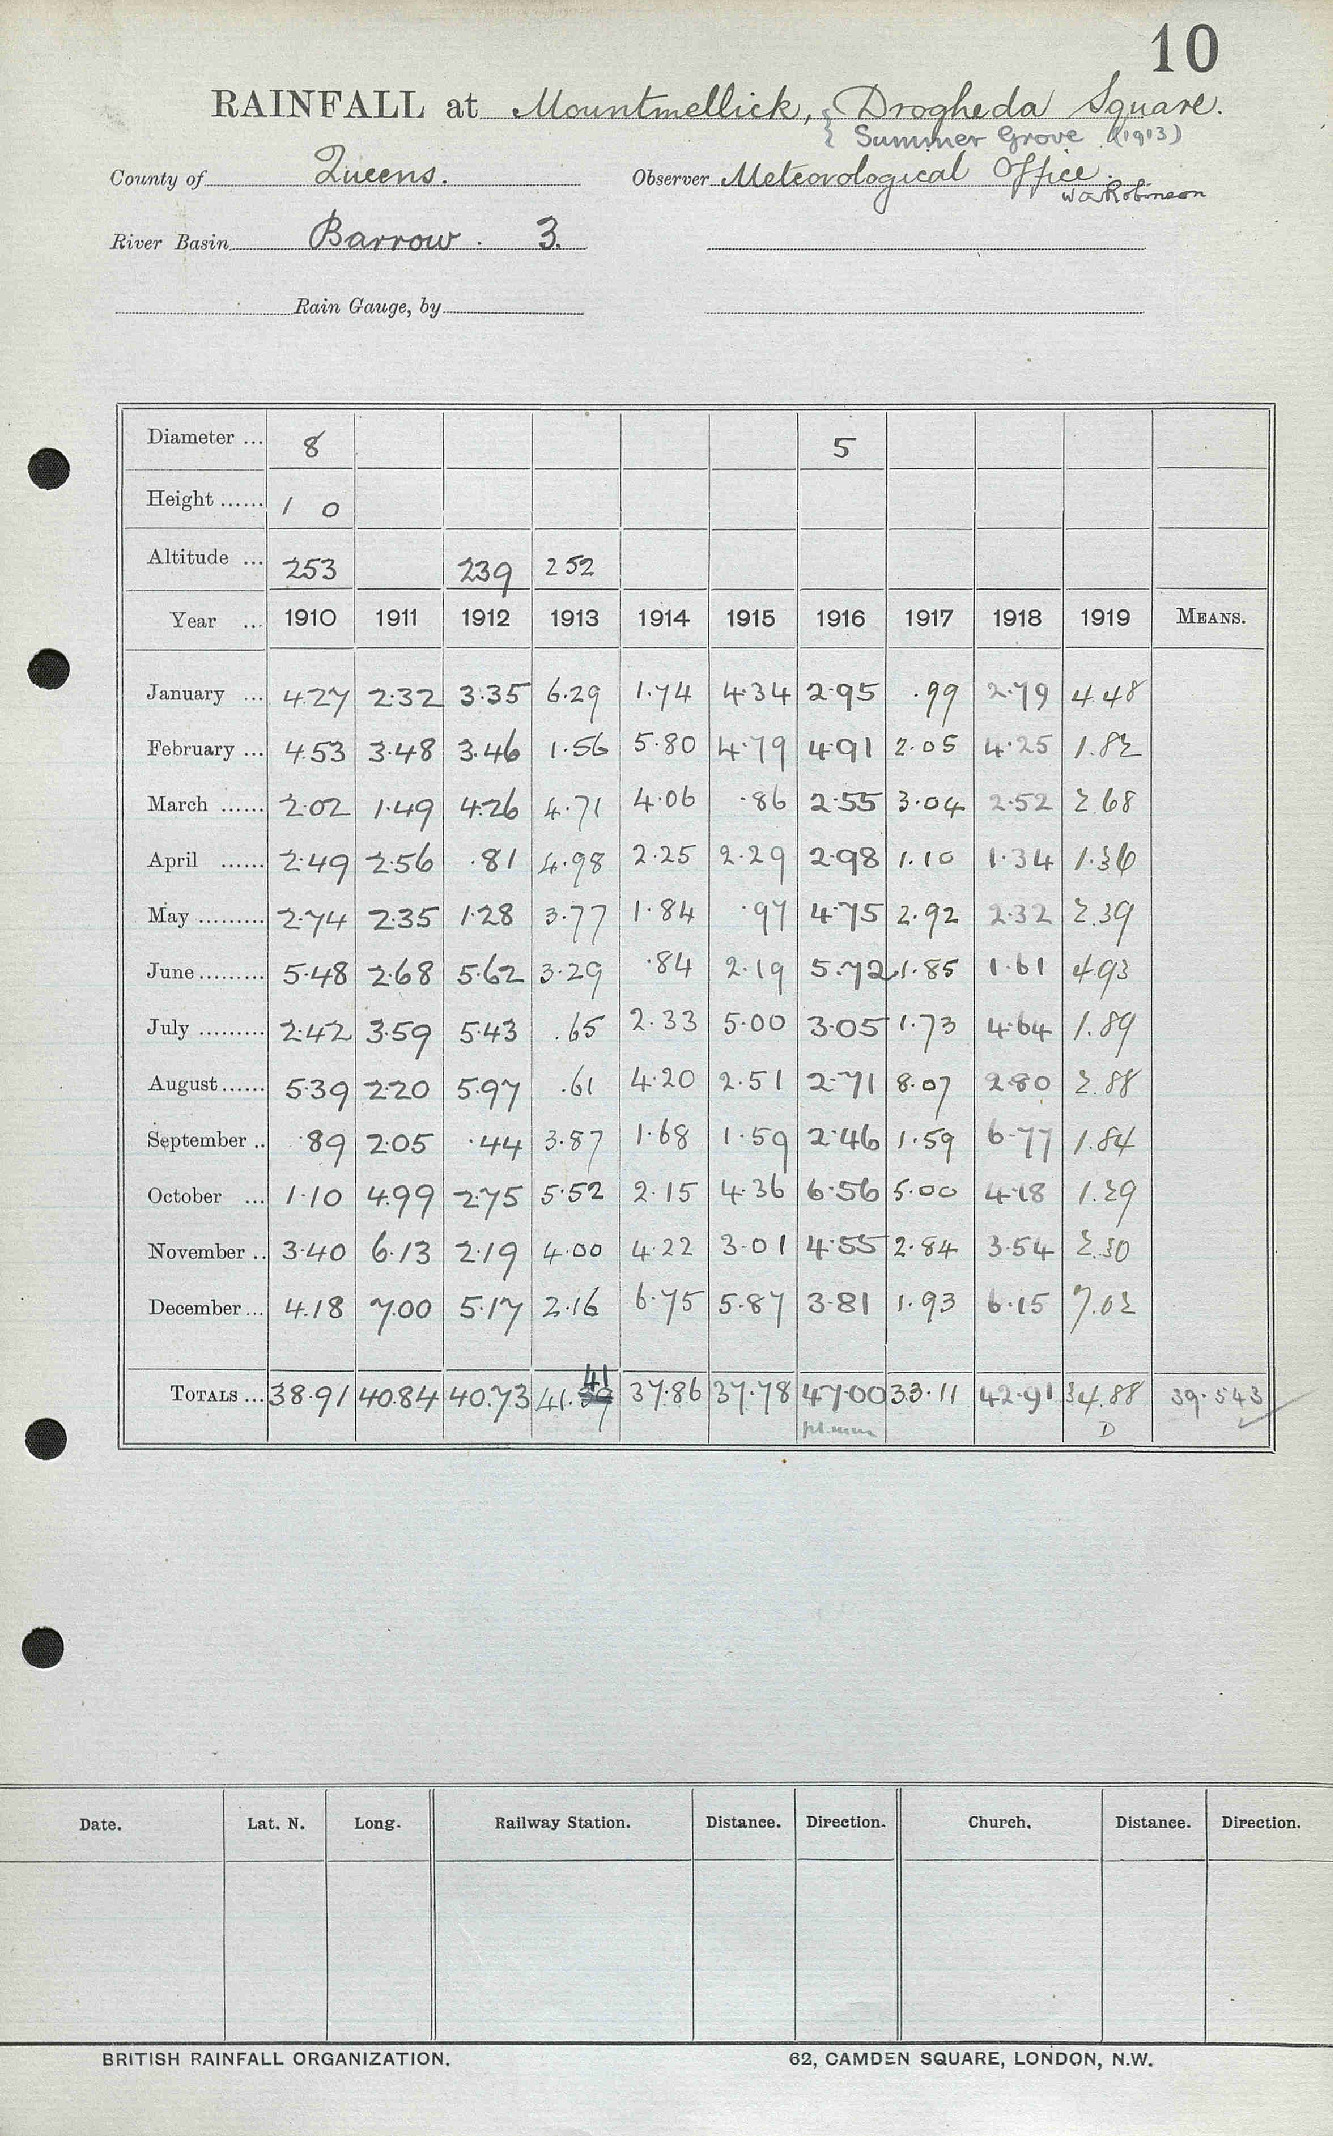 10
RAINFALL at Mountmellick, { Drogheda Square.
{ Summer Grove (1913)
County of Queens. Observer Meteorological Office.
W A Robinson
River Basin Barrow. 3.
Rain Gauge, by
Diameter ... 8 5
Height ...... 1 0
Altitude ... 253 239 252
Year ... 1910 1911 1912 1913 1914 1915 1916 1917 1918 1919 MEANS.
January ... 4.27 2.32 3.35 6.29 1.74 4.34 2.95 .99 2.79 4.48
February ... 4.53 3.48 3.46 1.56 5.80 4.79 4.91 2.05 4.25 1.82
March ...... 2.02 1.49 4.26 4.71 4.06 .86 2.55 3.04 2.52 2.68
April ...... 2.49 2.56 .81 4.98 2.25 2.29 2.98 1.10 1.34 1.36
May ......... 2.74 2.35 1.28 3.77 1.84 .97 4.75 2.92 2.32 2.39
June ......... 5.48 2.68 5.62 3.29 .84 2.19 5.72 1.85 1.61 4.93
July ......... 2.42 3.59 5.43 .65 2.33 5.00 3.05 1.73 4.64 1.89
August ...... 5.39 2.20 5.97 .61 4.20 2.51 2.71 8.07 2.80 2.88
September .. .89 2.05 .44 3.87 1.68 1.59 2.46 1.59 6.77 1.84
October ... 1.10 4.99 2.75 5.52 2.15 4.36 6.56 5.00 4.18 1.29
November .. 3.40 6.13 2.19 4.00 4.22 3.01 4.55 2.84 3.54 2.30
December ... 4.18 7.00 5.17 2.16 6.75 5.87 3.81 1.93 6.15 7.02
41
TOTALS ... 38.91 40.84 40.73 41.39 37.86 37.78 47.00 33.11 42.91 34.88 39.543
D
Date. Lat. N. Long. Railway Station. Distance. Direction. Church. Distance. Direction.
BRITISH RAINFALL ORGANIZATION. 62, CAMDEN SQUARE, LONDON, N.W.